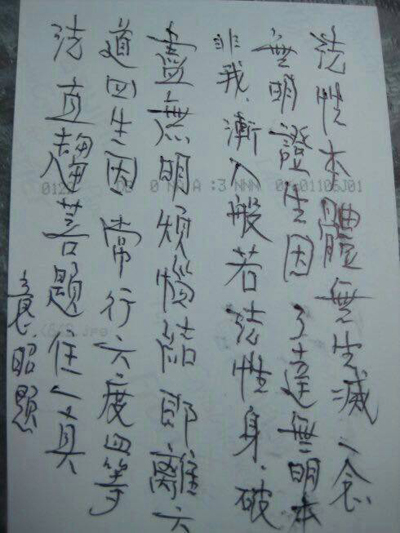 法性本體無生滅一念
無明證生因了達無明本
非我漸入般若法性身破
盡無明煩惱結即離六
道四生因常行六度四等
法直趣菩題任一真
昭題